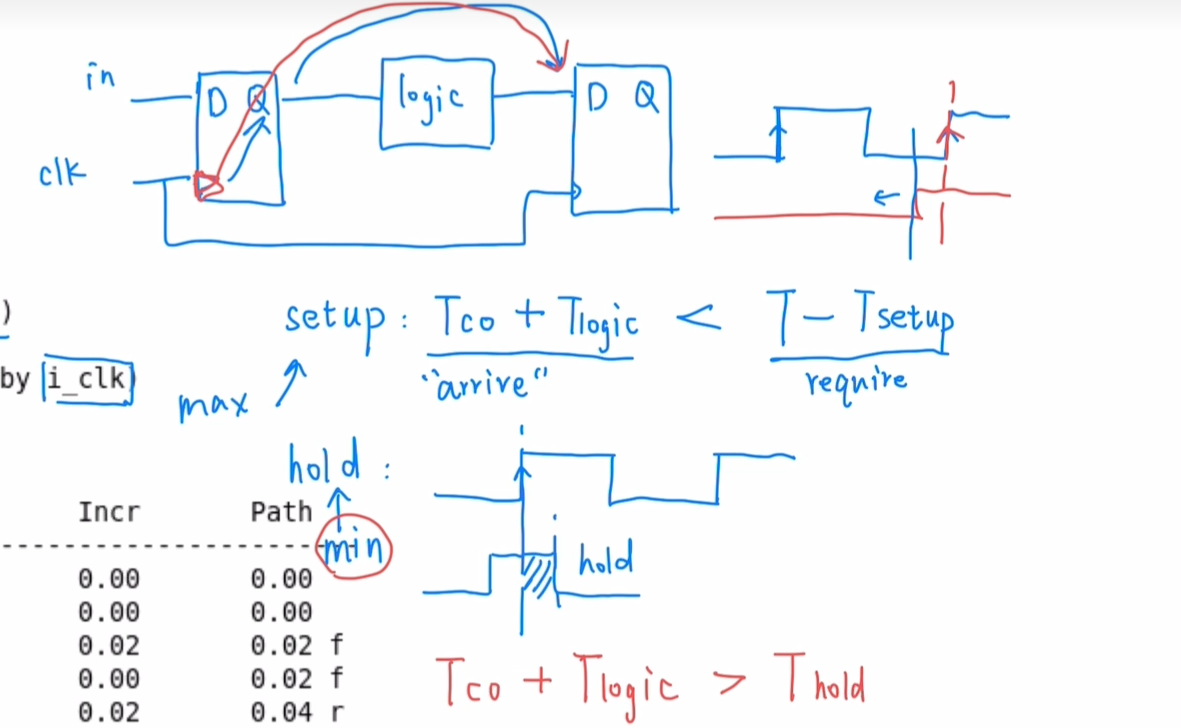 in
D Q
logic
D Q
clk
)
setup: Tco + Tlogic < T - Tsetup
"arrive" require
by i_clk)
max
hold:
Incr Path
min
hold
0.00 0.00
0.00 0.00
0.02 0.02 f
0.00 0.02 f
0.02 0.04 r
Tco + Tlogic > Thold